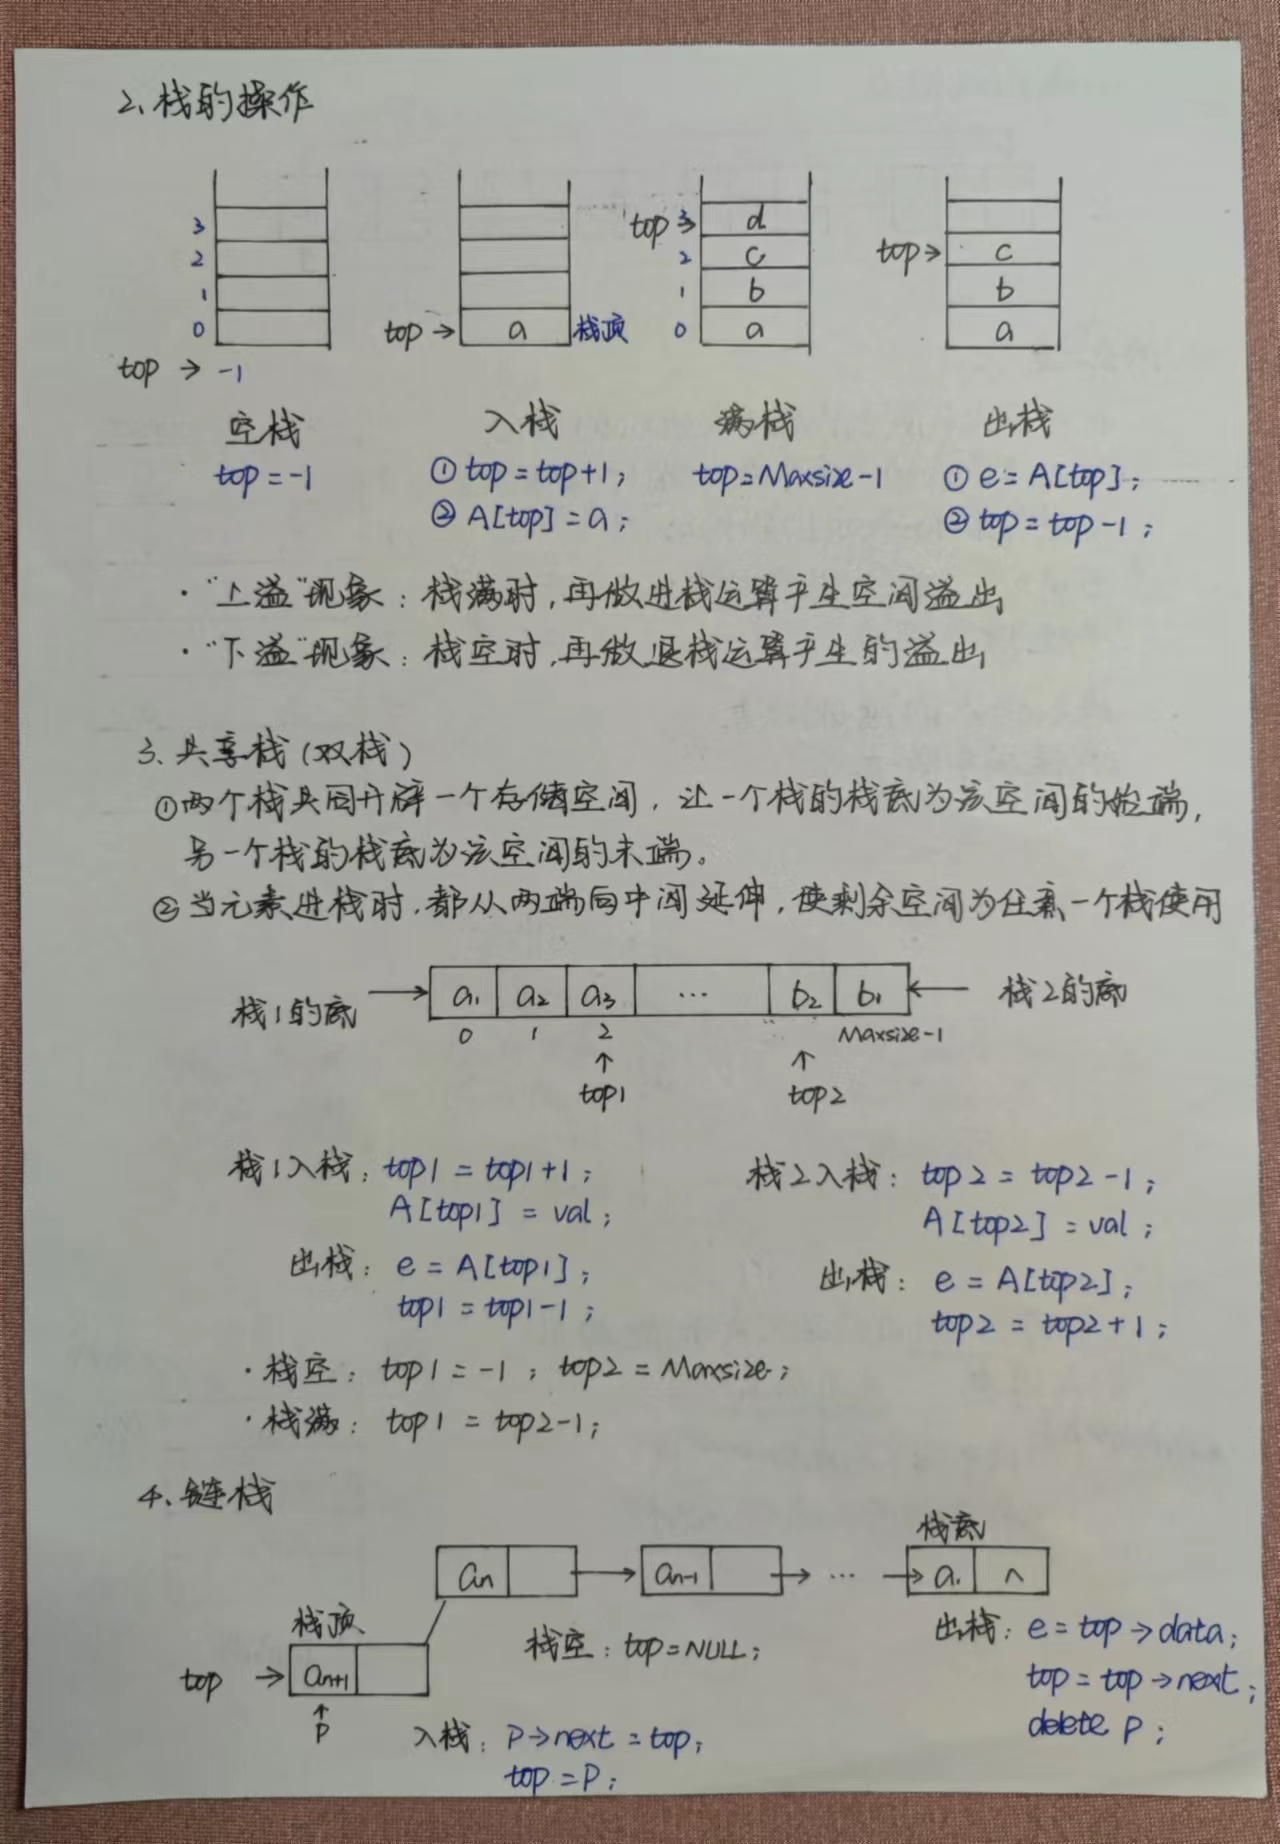 2、栈的操作
3
2
1
0
top → -1
top → a 栈顶
top 3 → d
2 c
1 b
0 a
top → c
b
a
空栈 入栈 满栈 出栈
top = -1 ① top = top+1; top = Maxsize-1 ① e = A[top];
② A[top] = a; ② top = top-1;
·“上溢”现象：栈满时,再做进栈运算产生空间溢出
·“下溢”现象：栈空时,再做退栈运算产生的溢出
3、共享栈(双栈)
①两个栈共同开辟一个存储空间，让一个栈的栈底为该空间的始端,
另一个栈的栈底为该空间的末端。
②当元素进栈时,都从两端向中间延伸,使剩余空间为任意一个栈使用
栈1的底 → a1 a2 a3 ... b2 b1 ← 栈2的底
0 1 2 Maxsize-1
↑ ↑
top1 top2
栈1入栈: top1 = top1+1; 栈2入栈: top2 = top2-1;
A[top1] = val; A[top2] = val;
出栈: e = A[top1]; 出栈: e = A[top2];
top1 = top1-1; top2 = top2+1;
·栈空: top1 = -1; top2 = Maxsize;
·栈满: top1 = top2-1;
4、链栈
栈底
an → an-1 → ... → a1 ∧
栈顶
top → an+1
↑
p
栈空: top=NULL;
出栈: e = top→data;
top = top→next;
delete p;
入栈: p→next = top;
top = p;